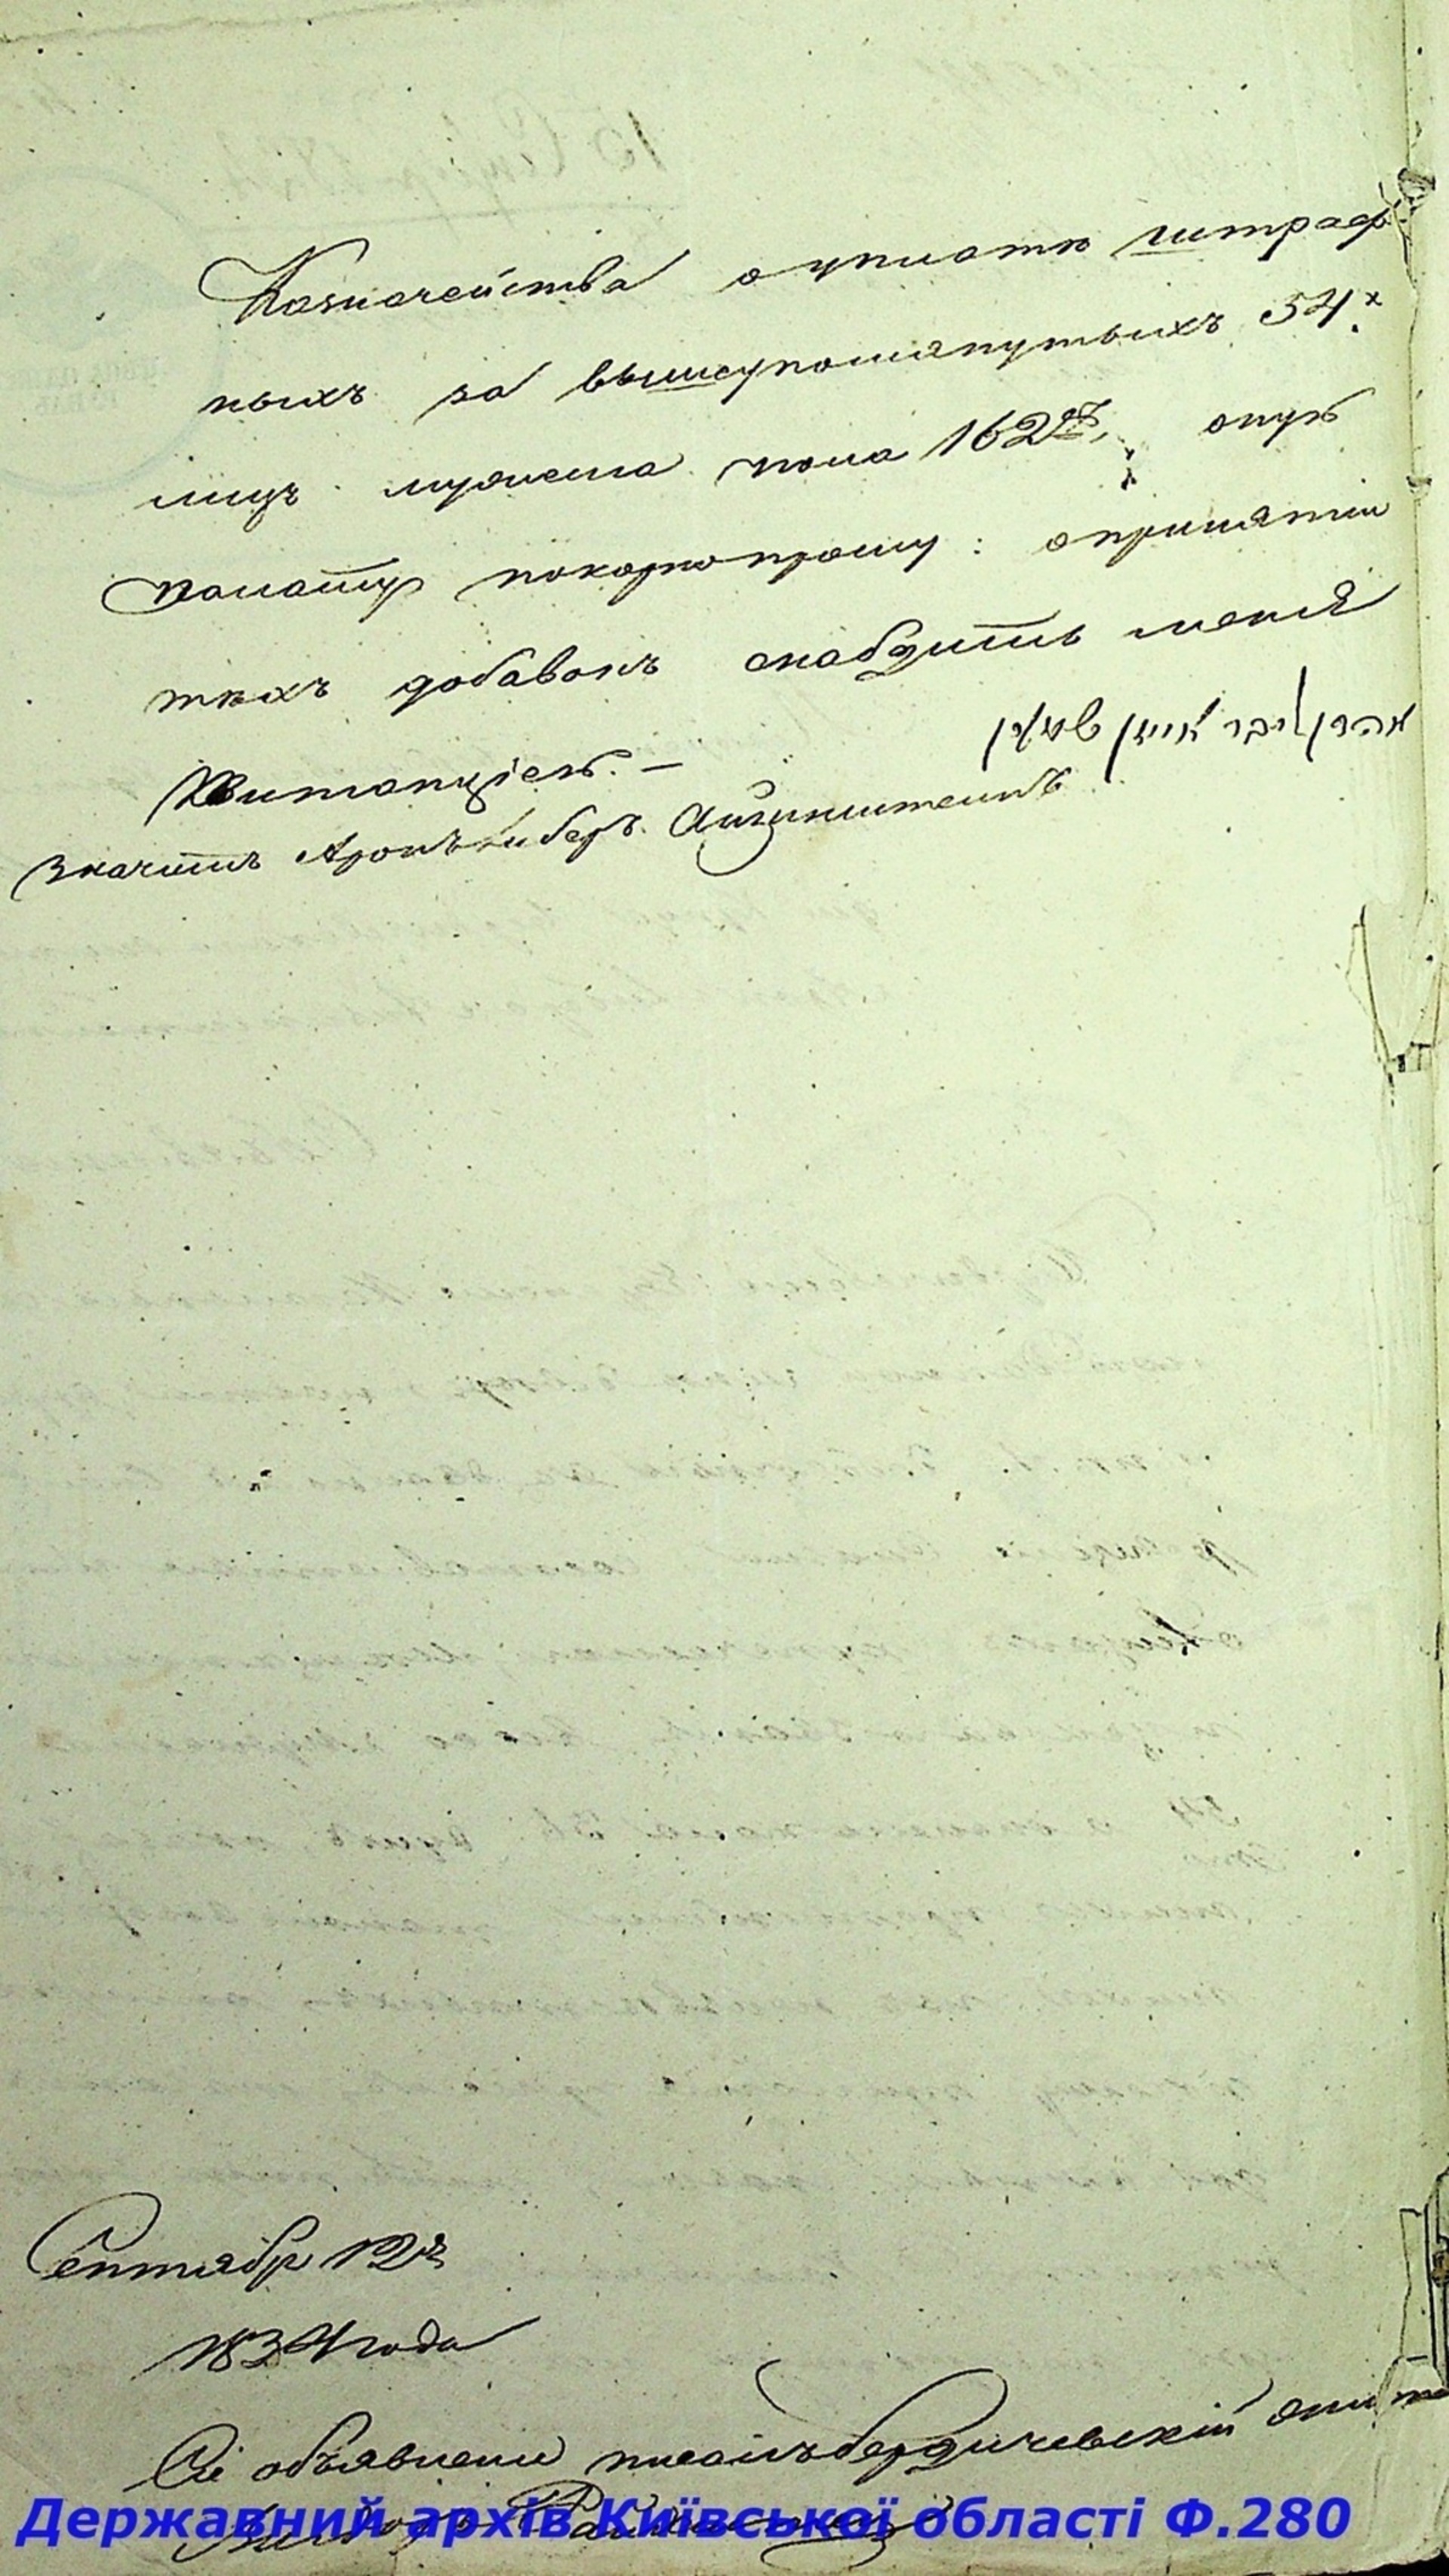 Казначейства о уплатѣ штраф
ныхъ за вышеупомянутыхъ 54х
лицъ мужеска пола 162
Палату покорно прошу: о принятіи
тѣхъ добавокъ снабдить меня
Квитанціею. —
אהרן ליבר אייזן שטיין
Значитъ Аронъ Либеръ Айзинштейнъ
Сентябр 12
1834 года
Сіе объявлени писалъ бердичевскій
Державний архів Київської області Ф.280